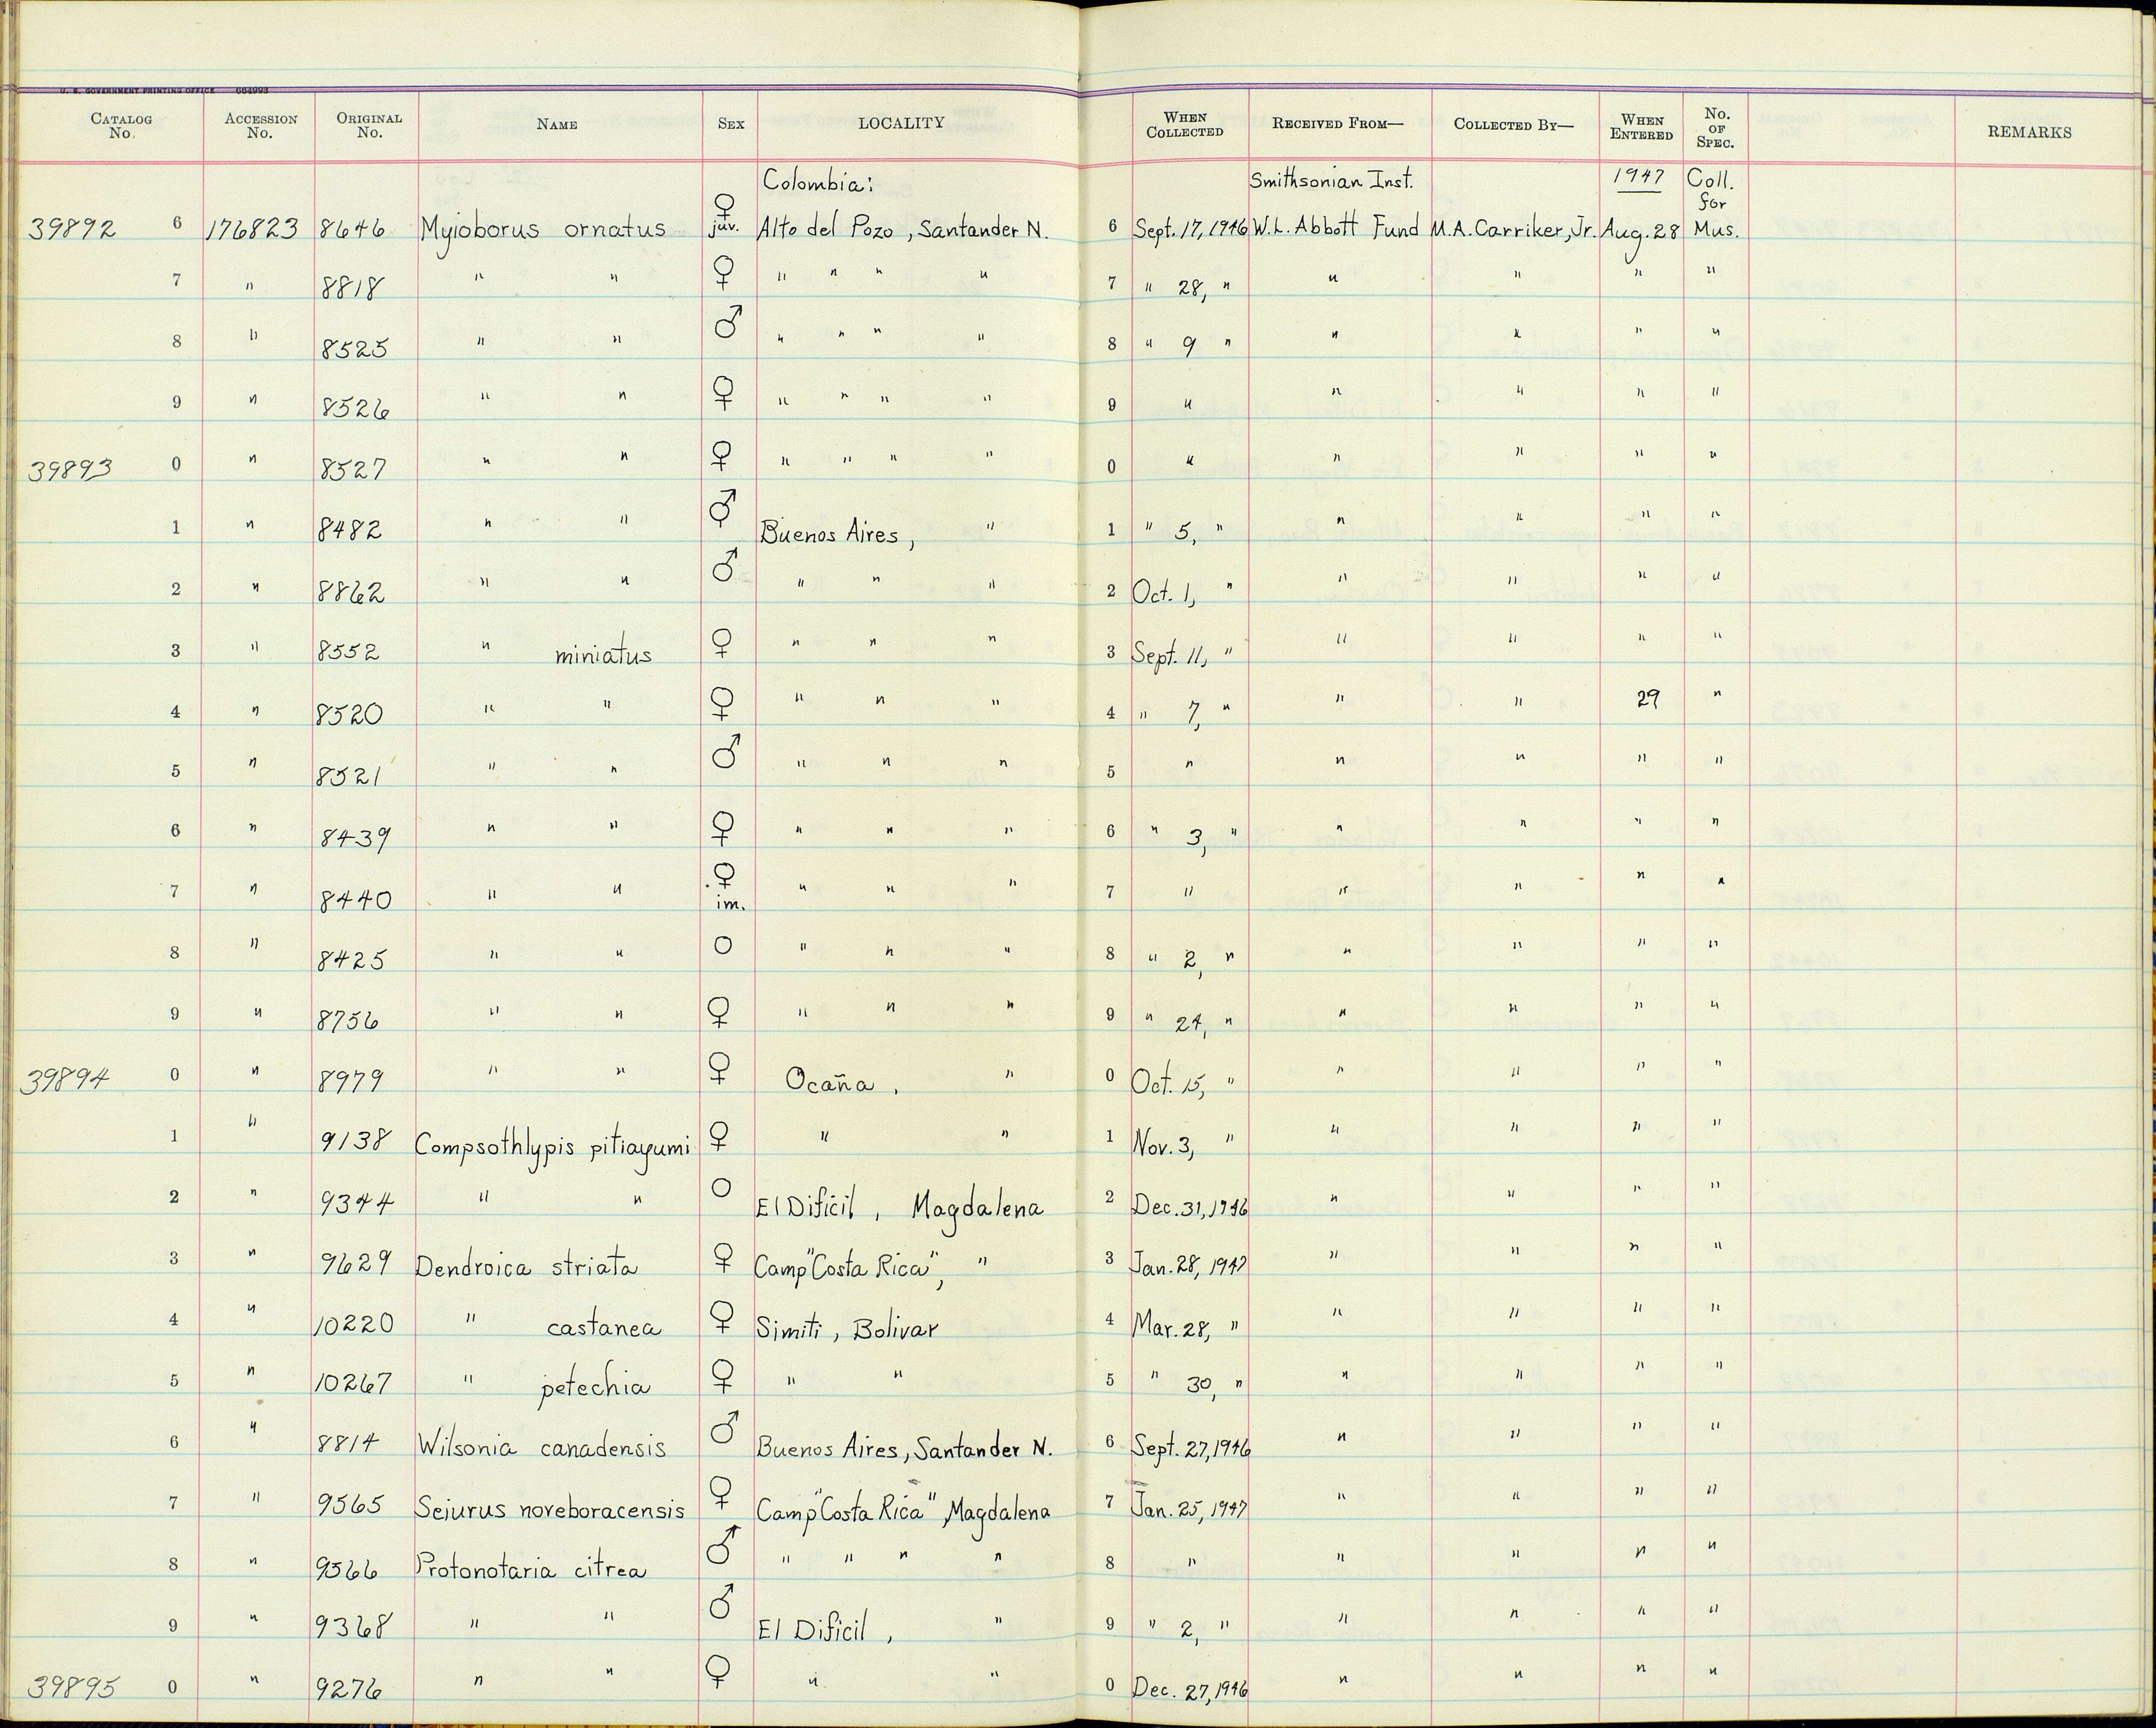 U. S. GOVERNMENT PRINTING OFFICE 664993
CATALOG No. ACCESSION No. ORIGINAL No. NAME SEX LOCALITY WHEN COLLECTED RECEIVED FROM— COLLECTED BY— WHEN ENTERED No. OF SPEC. REMARKS
Colombia: Smithsonian Inst. 1947 Coll. for
39892 6 176823 8646 Myioborus ornatus ♀ juv. Alto del Pozo, Santander N. 6 Sept. 17, 1946 W.L. Abbott Fund M.A. Carriker, Jr. Aug. 28 Mus.
7 " 8818 " " ♀ " " " " 7 " 28, " " " " "
8 " 8525 " " ♂ " " " " 8 " 9 " " " " "
9 " 8526 " " ♀ " " " " 9 " " " " "
39893 0 " 8527 " " ♀ " " " " 0 " " " " "
1 " 8482 " " ♂ Buenos Aires, " 1 " 5, " " " " "
2 " 8862 " " ♂ " " " 2 Oct. 1, " " " " "
3 " 8552 " miniatus ♀ " " " 3 Sept. 11, " " " " "
4 " 8520 " " ♀ " " " 4 " 7, " " " 29 "
5 " 8521 " " ♂ " " " 5 " " " " "
6 " 8439 " " ♀ " " " 6 " 3, " " " " "
7 " 8440 " " ♀ im. " " " 7 " " " " "
8 " 8425 " " O " " " 8 " 2, " " " " "
9 " 8756 " " ♀ " " " 9 " 24, " " " " "
39894 0 " 8979 " " ♀ Ocaña, " 0 Oct. 15, " " " " "
1 " 9138 Compsothlypis pitiayumi ♀ " " 1 Nov. 3, " " " " "
2 " 9344 " " O El Dificil, Magdalena 2 Dec. 31, 1946 " " " "
3 " 9629 Dendroica striata ♀ Camp "Costa Rica", " 3 Jan. 28, 1947 " " " "
4 " 10220 " castanea ♀ Simiti, Bolivar 4 Mar. 28, " " " " "
5 " 10267 " petechia ♀ " " 5 " 30, " " " " "
6 " 8814 Wilsonia canadensis ♂ Buenos Aires, Santander N. 6 Sept. 27, 1946 " " " "
7 " 9565 Seiurus noveboracensis ♀ Camp "Costa Rica" Magdalena 7 Jan. 25, 1947 " " " "
8 " 9566 Protonotaria citrea ♂ " " " " 8 " " " " "
9 " 9368 " " ♂ El Dificil, " 9 " 2, " " " " "
39895 0 " 9276 " " ♀ " " 0 Dec. 27, 1946 " " " "